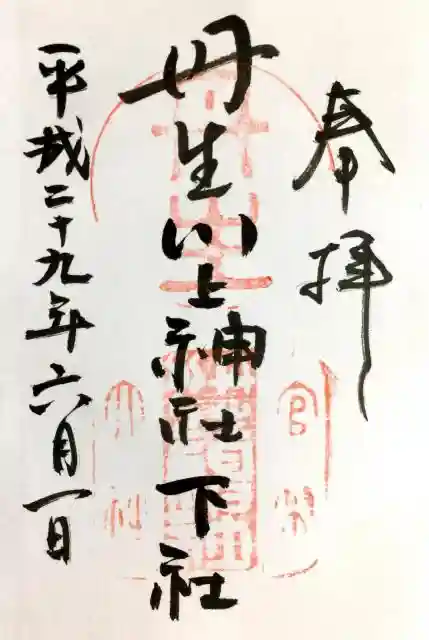 奉拝
丹生川上神社下社
平成二十九年六月一日